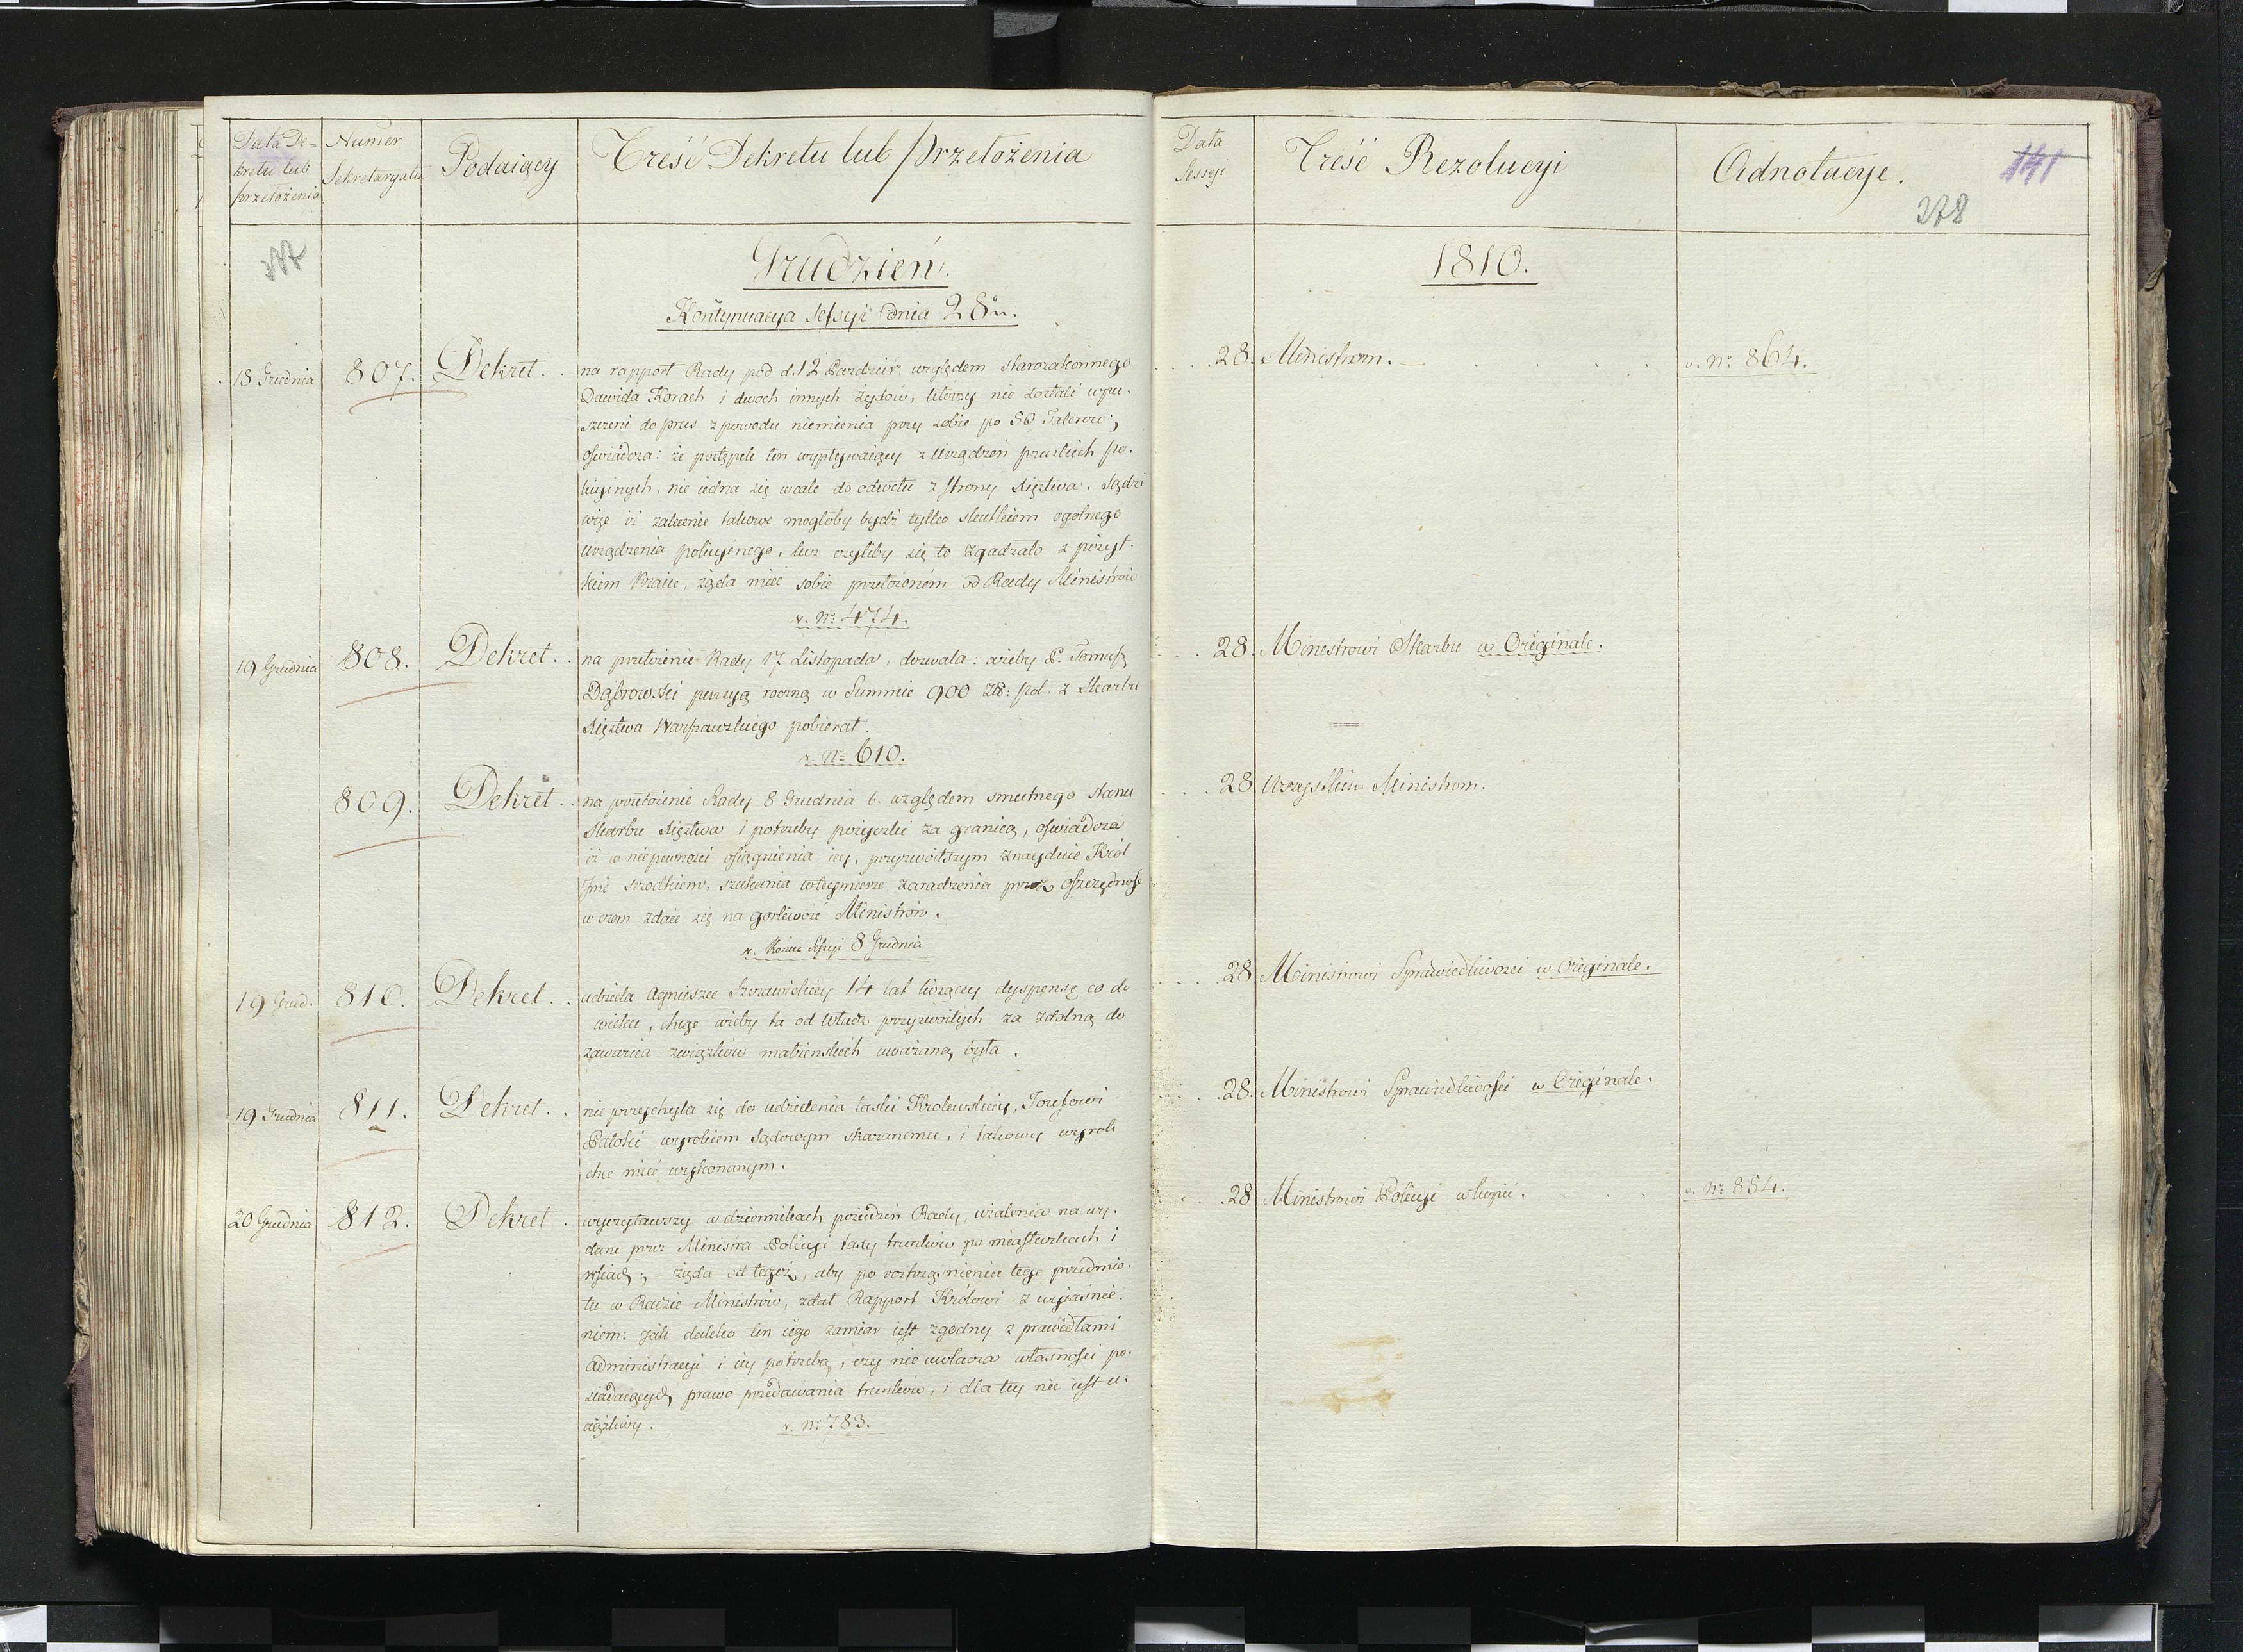 Data De-
kretu lub
przełożenia
Numer
Sekretaryatu
Podaiący
Treść Dekretu lub przełożenia
Data
Sessyi
Treść Rezolucyi
Adnotacye.
141
278
277
Grudzień.
1810.
Kontynuacya Sessyi dnia 28º
18 Grudnia
807.
Dekret.
na rapport Rady pod d. 12 Pazdzier. względem starozakonnego
Dawida Korach i dwoch innych żydów, którzy nie zostali wpu-
szczeni do prus z powodu niemienia przy sobie po 50 Talerow;
oswiadcza: że postępek ten wypływaiący z Urządzeń pruskich po-
licyinych, nie iedna się wcale do odwetu z strony Xięztwa. Sądzi
więc iż zalecenie takowe mogłoby bydź tylko skutkiem ogolnego
urządzenia policyinego, lecz czyliby się to zgadzało z pożyt-
kiem kraiu, żąda mieć sobie przełożonem od Rady Ministrów
v. Nº 474.
28. Ministrom.
v. Nº 864.
19 Grudnia
808.
Dekret.
na przełożenie Rady 17 Listopada, dozwala: ażeby P. Tomasz
Dąbrowski pensyą roczną w Summie 900 Zł: pol. z Skarbu
Xięztwa Warszawskiego pobierał.
v. Nº 610.
28. Ministrowi Skarbu w Originale.
809.
Dekret.
na przełożenie Rady 8 Grudnia b. względem smutnego stanu
Skarbu Xięztwa i potrzeby pożyczki za granicą, oswiadcza
iż w niepewności osiągnienia iey, przyzwoitszym znayduie Król
Jmć srodkiem, szukania wteymierze zaradzenia przez oszczędność
w czem zdaie się na gorliwość Ministrów.
v. Koniec Sessyi 8 Grudnia
28 Wszystkim Ministrom.
19 Grud.
810.
Dekret.
udziela Agnieszce 14 lat liczącey dyspensę co do
wieku, chcąc ażeby ta od Władz przyzwoitych za zdolną do
zawarcia związków małżenskich uważaną była.
28 Ministrowi Sprawiedliwosci w Originale.
19 Grudnia
811.
Dekret.
nie przychyla się do udzielenia łaski Krolewskiey, Jozefowi
Pałoki wyrokiem sądowym skazanemu, i takowy wyrok
chce mieć wykonanym.
28. Ministrowi Sprawiedliwosci w Originale.
20 Grudnia
812.
Dekret
wyczytawszy w dziennikach posiedzeń Rady, użalenia na wy-
dane przez Ministra Policyi taxy trunków po miasteczkach i
wsiach; – żąda od tegoż, aby po roztrząśnieniu tego przedmio-
tu w Radzie Ministrów, zdał Rapport Królowi z wyiaśnie-
niem: jak daleko ten iego zamiar iest zgodny z prawidłami
administracyi i iey potrzebą, czy nie uwłacza własnosci po-
siadaiących prawo przedawania trunków, i dla tey nie iest u-
ciążliwy.
v. Nº 783.
28 Ministrowi Policyi w kopii.
v. Nº 854.